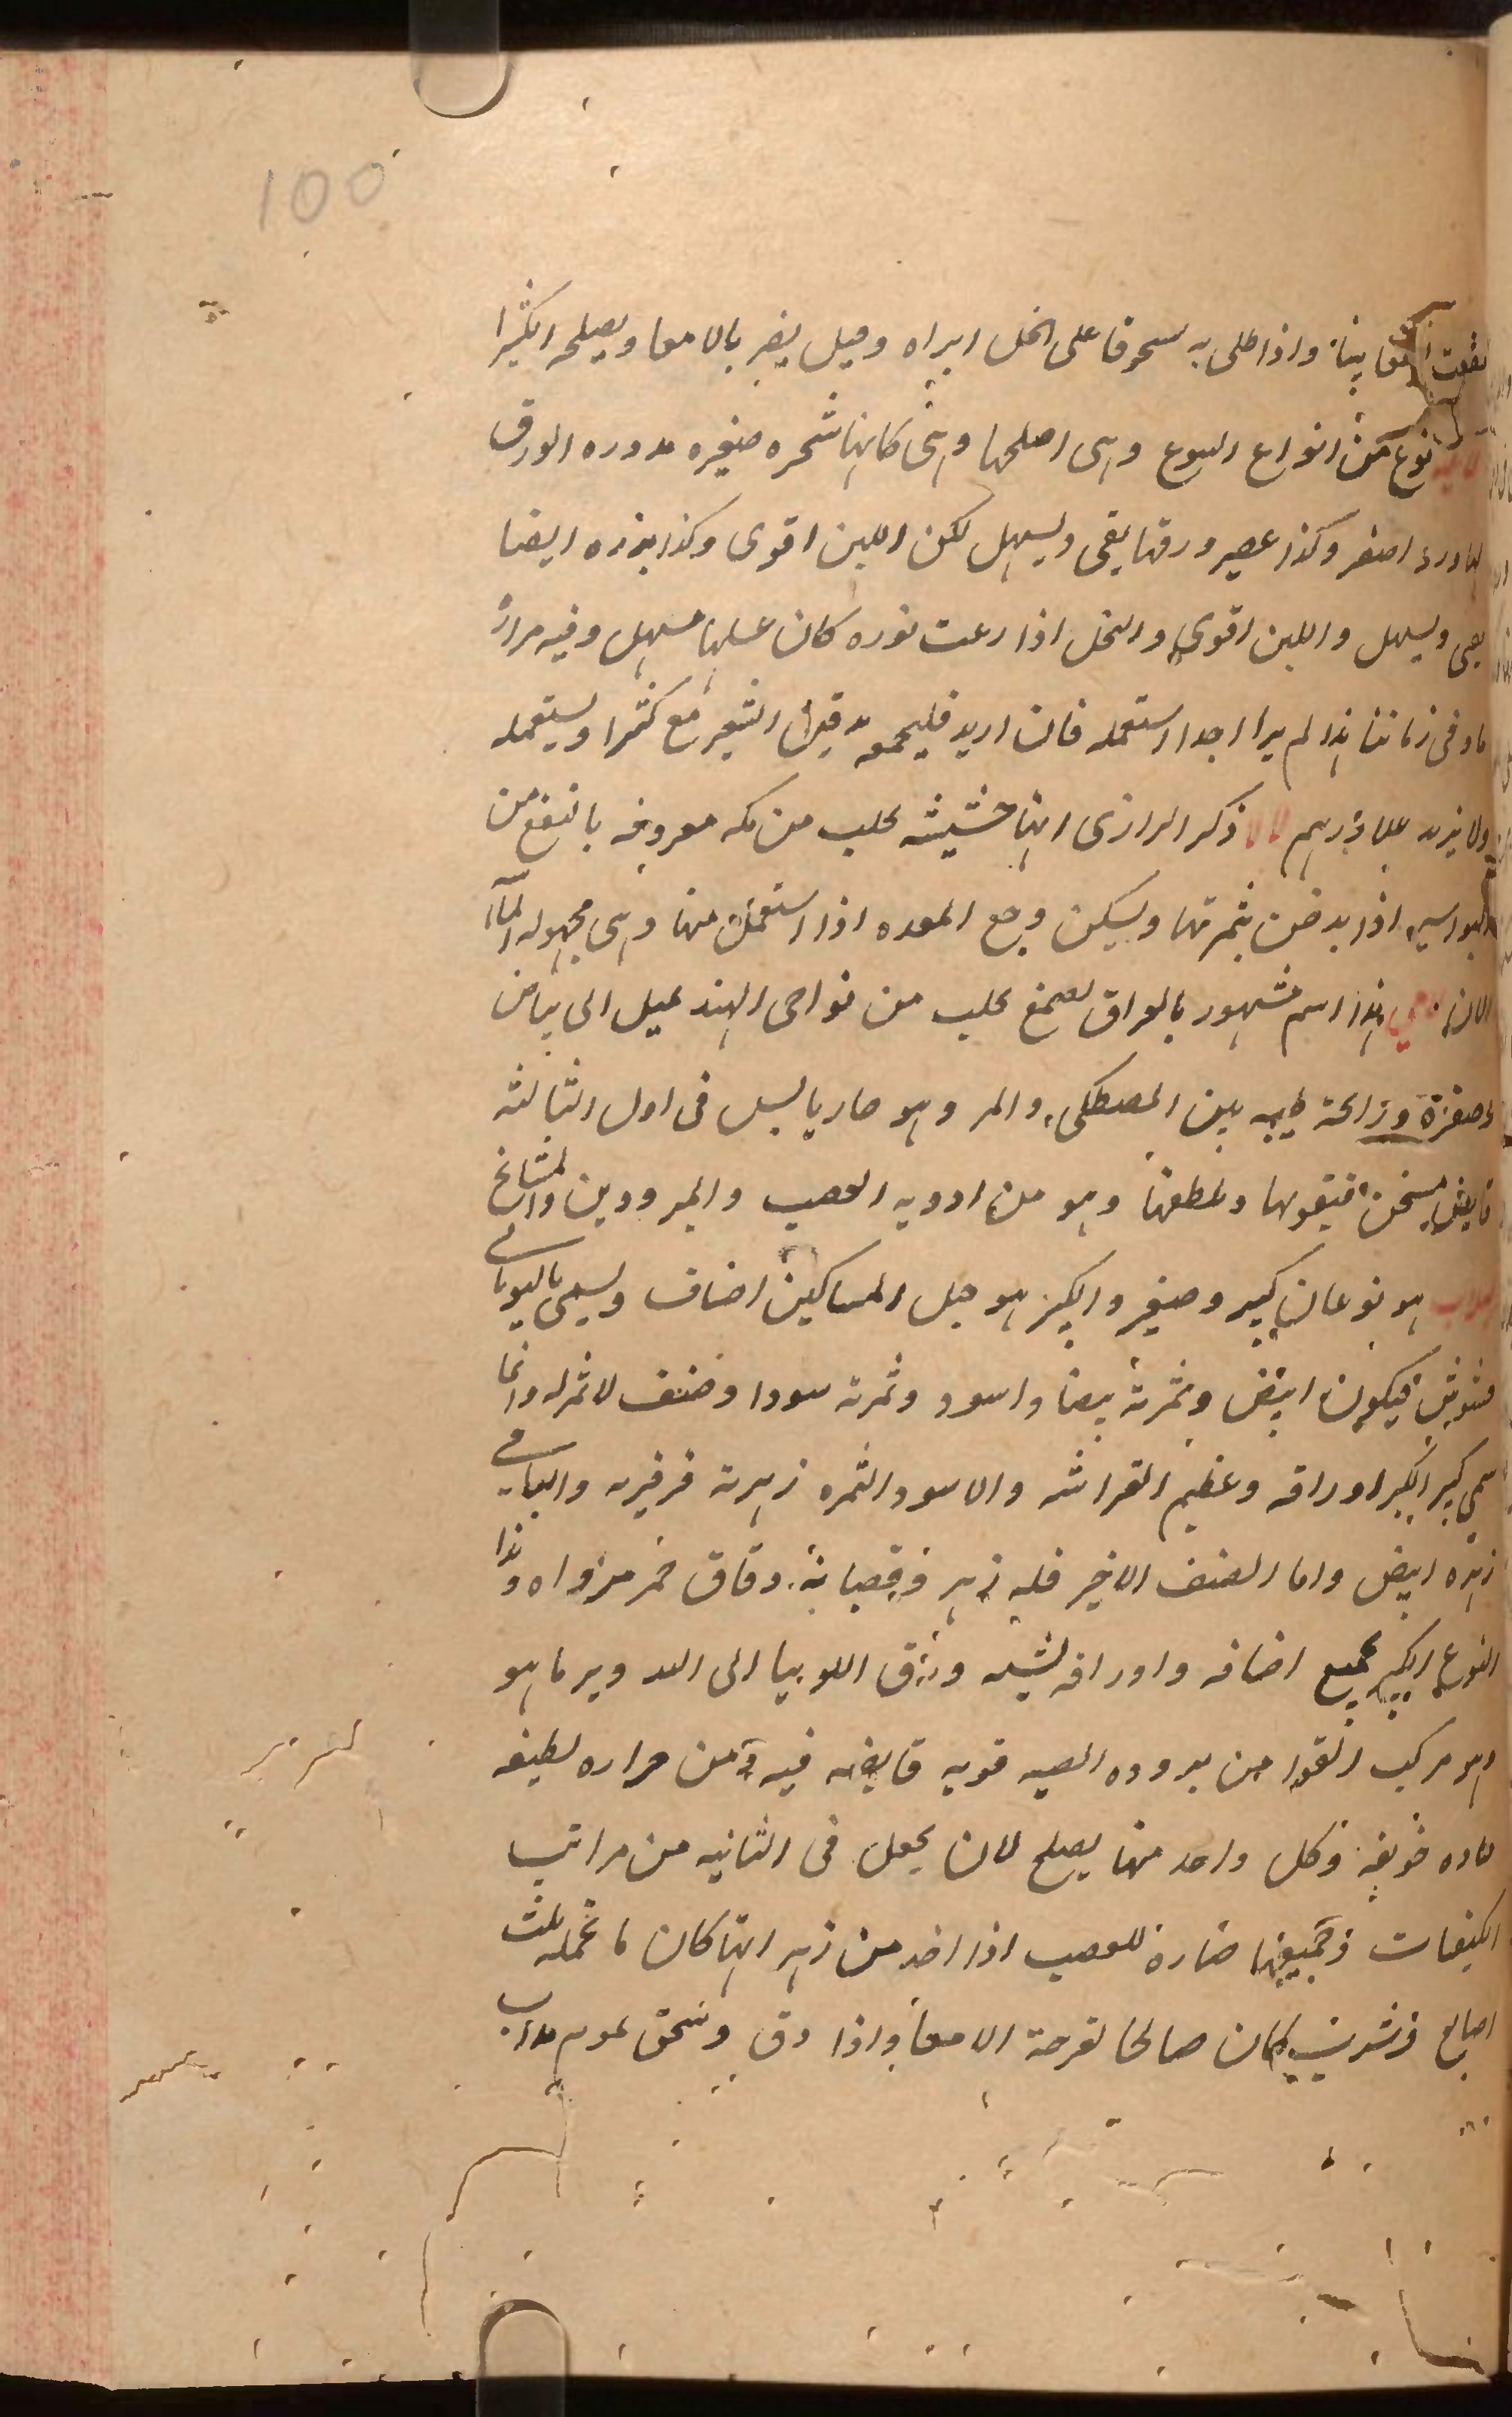 100
نفعت واذا طلى به سحوقا على الخل ابراه وقيل يضر بالامعا ويصلحه الكثيرا
نوع من انواع اليتوع وهى اصلحها وهى كانها شجره صغيره مدوره الورق
لها ورد اصفر وكذا عصير ورقها يقى ويسهل لكن اللبن اقوى وكذا بذره ايضا
يقى ويسهل واللبن اقوى والنحل اذا رعت نوره كان عسلها مسهل وفيه مراره
وفى زماننا هذا لم يرا احدا استعمله فان اريد فليجمعه بدقيق الشعير مع كثيرا ويستعمله
ولا يزيد على درهم لالا ذكر الرازى انها حشيشه تجلب من مكه معروفه بالنفع من
البواسير اذا بدخن بثمرتها ويسكن وجع المعده اذا استعمل منها وهى مجهوله الى
الان لامي هذا اسم مشهور بالعراق لصمغ يجلب من نواحى الهند يميل الى بياض
وصفرة ورائحة طيبه بين المصطكى والمر وهو حار يابس فى اول الثالثه
قابض مسخن فيقويها ويلطفها وهو من ادويه العصب والمبرودين والمشايخ
لبلاب هو نوعان كبير وصغير والكبير هو حبل المساكين اصناف ويسمى باليونانى
فيكون ابيض وثمرته بيضا واسود وثمرته سودا وصنف لا ثمر له وانما
سمى كبير الكبر اوراقه وعظيم افتراشه والاسود الثمره زهرته فرفيريه والباقى
زهره ابيض واما الصنف الاخير فله زهر وقصبانه دقاق حمر مزواه وهذا
النوع الكبير بجميع اصنافه واوراقه تشبه ورق اللوبيا الى
وهو مركب القوا من بروده قويه قابضه فيه ومن حراره لطيفه
حاده حريفه وكل واحد منها يصلح لان يجعل فى الثانيه من مراتب
الكيفيات وجميعها ضاره للعصب اذا اخذ من زهر ايها كان ما تحمله ثلث
اصابع وشرب كان صالحا لقرحة الامعا واذا دق وسحق بموم مداب